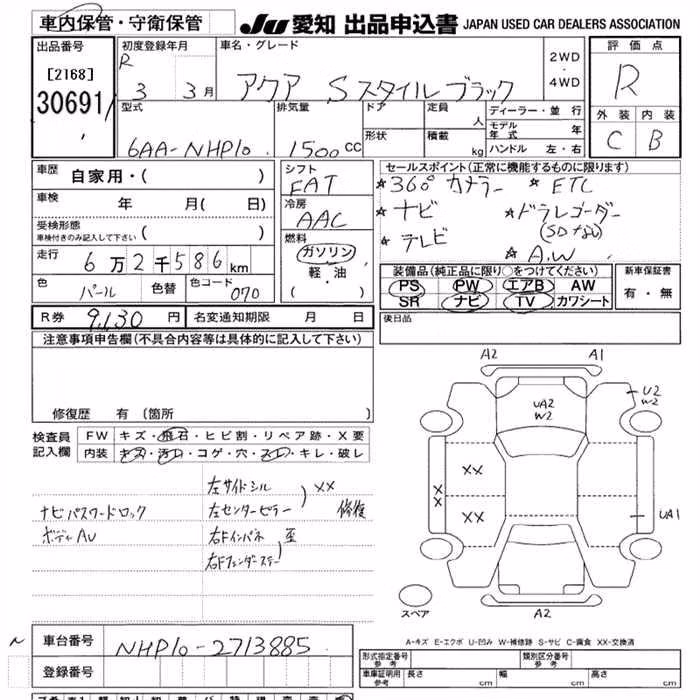 車内保管・守衛保管 JU 愛知 出品申込書 JAPAN USED CAR DEALERS ASSOCIATION
出品番号 初度登録年月 車名・グレード 2WD・4WD 評価点
[2168] R 3 3月 アクア Sスタイルブラック R
30691 型式 排気量 ドア 定員 人 ディーラー・並行 外装 内装
モデル年式 年
形状 積載 kg ハンドル 左・右
6AA-NHP10 1500cc C B
車歴 自家用・( ) シフト FAT セールスポイント(正常に機能するものに限ります)
車検 年 月( 日) 冷房 AAC ☆360°カメラー ☆ETC
受検形態 車検付きのみ記入して下さい ( ) ☆ナビ ☆ドラレコーダー
(SDなし)
☆テレビ ☆A.W
走行 6万2千586km 燃料 ガソリン・軽・油・( )
装備品(純正品に限り○をつけてください) 新車保証書
色 パール 色替 色コード 070 PS PW エアB AW 有・無
SR ナビ TV カワシート
R券 9,130円 名変通知期限 月 日 後日品
注意事項申告欄(不具合内容等は具体的に記入して下さい)
修復歴 有(箇所 )
検査員記入欄 FW キズ・飛石・ヒビ割・リペア跡・X要
内装 キズ・汚レ・コゲ・穴・スレ・キレ・破レ
左サイドシル XX
ナビパスワードロック 左センターピラー 修復
ボディAU 右Fインパネ 歪
右Fフェンダーステー
A2 A1
U2
W2
UA2
W2
XX
XX
XX
UA1
A2
スペア
A-キズ E-エクボ U-凹み W-補修跡 S-サビ C-腐食 XX-交換済
車台番号 NHP10-2713885
登録番号
形式指定番号 参考 類別区分番号 参考
車庫証明用 参考 長さ cm 幅 cm 高さ cm